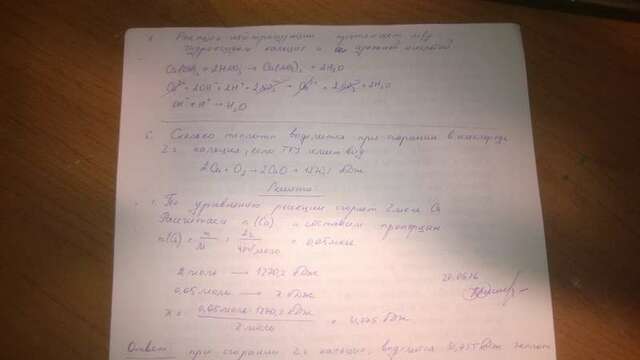 Реакция нейтрализации протекает м/у
гидроксидом кальция и азотной кислотой
Ca(OH)₂ + 2HNO₃ → Ca(NO₃)₂ + 2H₂O
Ca²⁺ + 2OH⁻ + 2H⁺ + 2NO₃⁻ → Ca²⁺ + 2NO₃⁻ + 2H₂O
OH⁻ + H⁺ → H₂O
Сколько теплоты выделится при сгорании в кислороде
2 г кальция, если ТХУ имеет вид
2Ca + O₂ → 2CaO + 1270,2 кДж
Решение
1. По уравнению реакции сгорает 2 моль Ca
Рассчитаем n(Ca) и составим пропорцию
n(Ca) = m/M = 2г / 40г/моль = 0,05 моль
2 моль → 1270,2 кДж
0,05 моль → x кДж
x = 0,05 моль · 1270,2 кДж / 2 моль = 31,755 кДж
Ответ при сгорании 2 г кальция, выделится 31,755 кДж теплоты